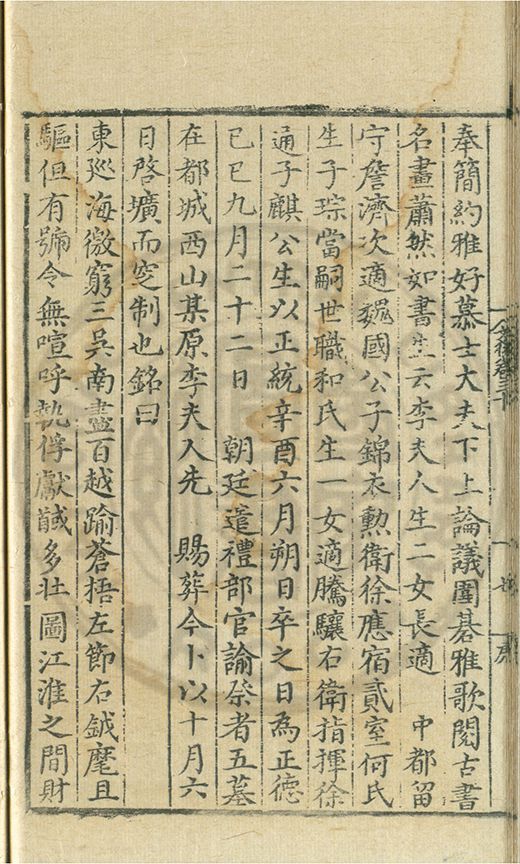 奉簡約雅好慕士大夫下上論議圍碁雅歌閱古書
名畫蕭然如書生云李夫人生二女長適　中都留
守詹濟次適魏國公子錦衣勲衛徐應宿貳室何氏
生子琮當嗣世職和氏生一女適騰驤右衛指揮徐
通子麒公生以正統辛酉六月朔日卒之日為正德
己巳九月二十二日　朝廷遣禮部官諭祭者五墓
在都城西山某原李夫人先　賜葬今卜以十月六
日啓壙而窆制也銘曰
東巡海徼窮三吳南盡百越踰蒼捂左節右鉞麾且
驅但有號令無喧呼執俘獻馘多壯圖江淮之間財